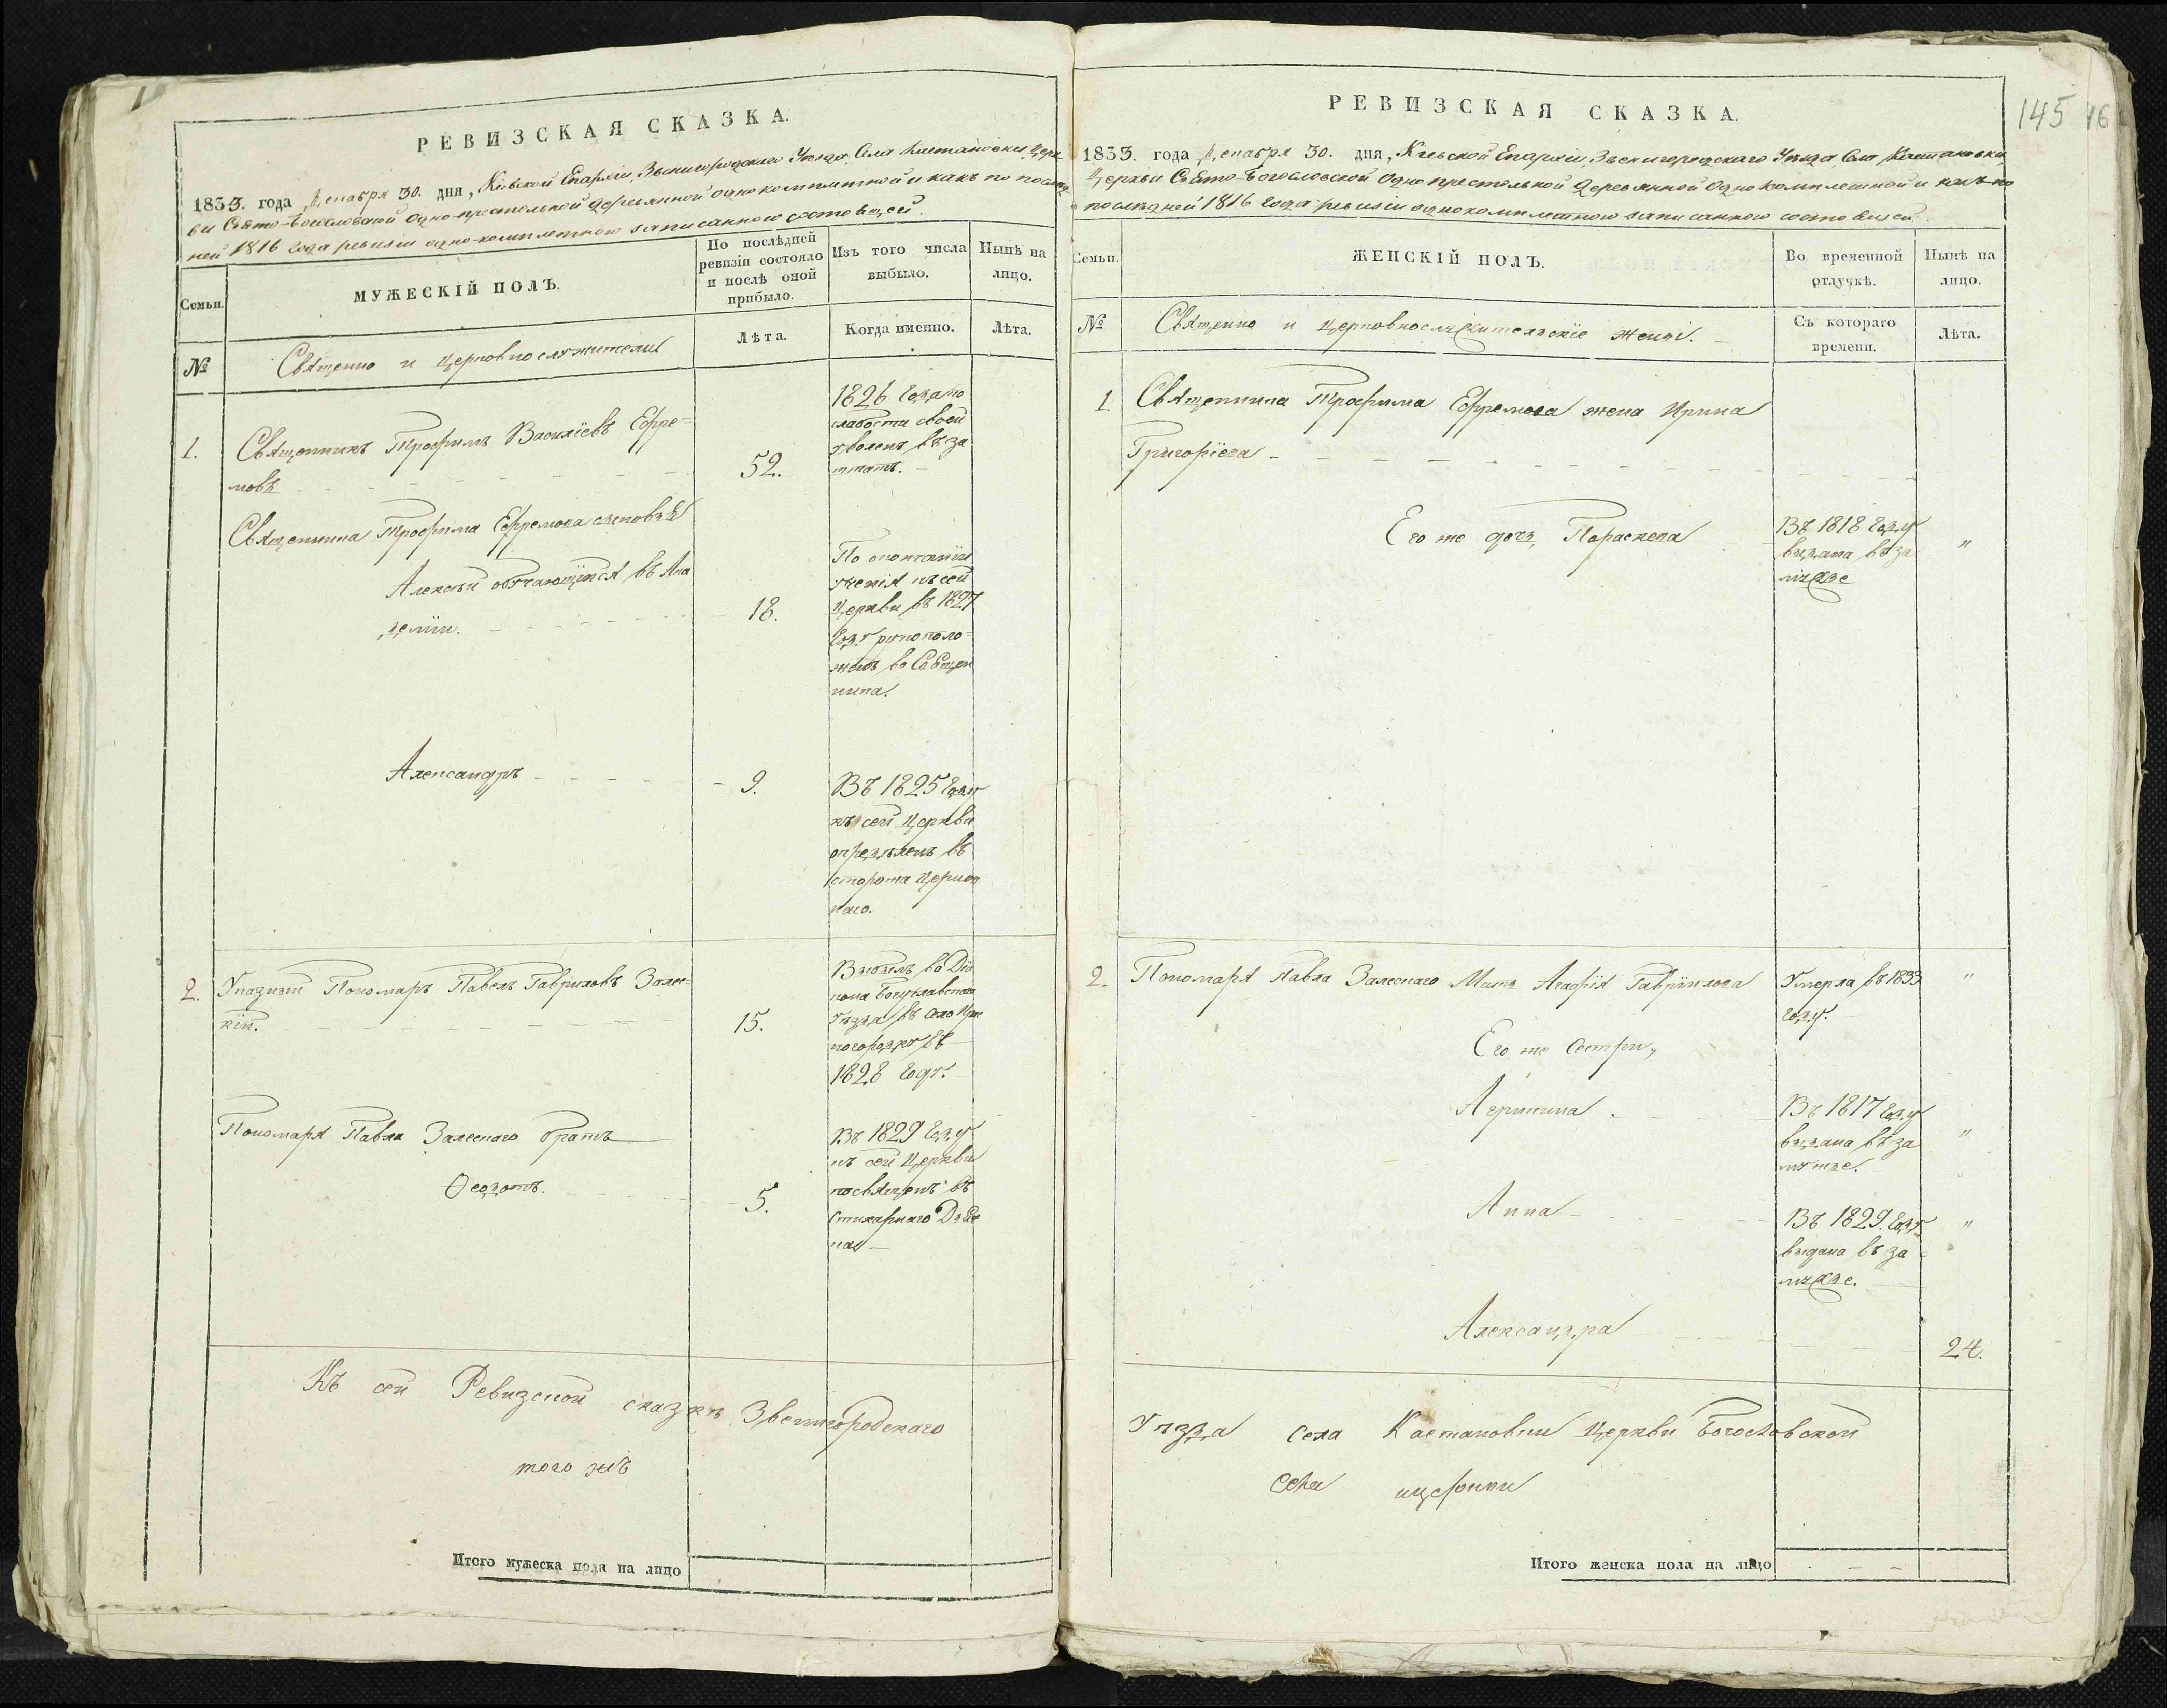 РЕВИЗСКАЯ СКАЗКА.
1833. года Декабря 30. дня, Кіевской Епархіи, Звенигородскаго Уезда, Села Кастановки, Церк
ви Свято-Богословской одно-престольной деревянной однокомплетной и какъ по послед
ней 1816 года ревизіи одно-комплетною записанною состоящей.
Семьи.
МУЖЕСКІЙ ПОЛЪ.
По послѣдней ревизіи состояло и послѣ оной прибыло.
Изъ того числа выбыло.
Нынѣ на лицо.
№
Священно и церковнослужители
Лѣта.
Когда именно.
Лѣта.
1.
Священникъ Трофимъ Василіевъ Ефре=
мовъ
52.
1826 года по
слабости своей
уволенъ въ за
штатъ.
Священника Трофима Ефремова сыновья
Алексѣй обучающійся въ Ака
деміи.
18.
По окончаніи
ученія къ сей
Церкви въ 1827
году рукополо=
женъ во Священ
ника.
Александръ
9.
Въ 1825 году
къ сей Церкви
опредѣленъ въ
сторожа Церков
наго.
2.
Указный Пономарь Павелъ Гавриловъ Залес=
кій.
15.
Выбылъ во Dіа
кона Богуславскаго
Уѣзда въ село
въ
1828 году.
Пономаря Павла Залескаго братъ
Ѳеодотъ.
5.
Въ 1829 году
къ сей Церкви
посвященъ въ
Стихарнаго Дьяч
ка
Къ сей Ревизской сказкѣ Звенигородскаго
того жъ
Итого мужеска пола на лицо
РЕВИЗСКАЯ СКАЗКА.
145 16
1833. года Декабря 30. дня, Кіевской Епархіи, Звенигородскаго Уезда Села Кастановки
Церкви Свято-Богословской однопрестольной деревянной однокомплетной и какъ по
последней 1816 года ревизіи однокомплетною записанною состоящей.
Семьи.
ЖЕНСКІЙ ПОЛЪ.
Во временной отлучкѣ.
Нынѣ на лицо.
№
Священно и церковнослужительскіе жены.
Съ котораго времени.
Лѣта.
1.
Священника Трофима Ефремова жена Ирина
Григоріева
Его же дочь, Параскева
Въ 1818 году
выдана въ за
мужье
"
2.
Пономаря Павла Залескаго Мать Агафія Гавріилова
Умерла въ 1833
году.
"
Его же Сестри,
Въ 1817 году
выдана въ за
мужье.
"
Анна
Въ 1829. году
выдана въ за
мужье.
"
Александра
24.
Уѣзда села Кастановки Церкви Богословской
села
Итого женска пола на лицо